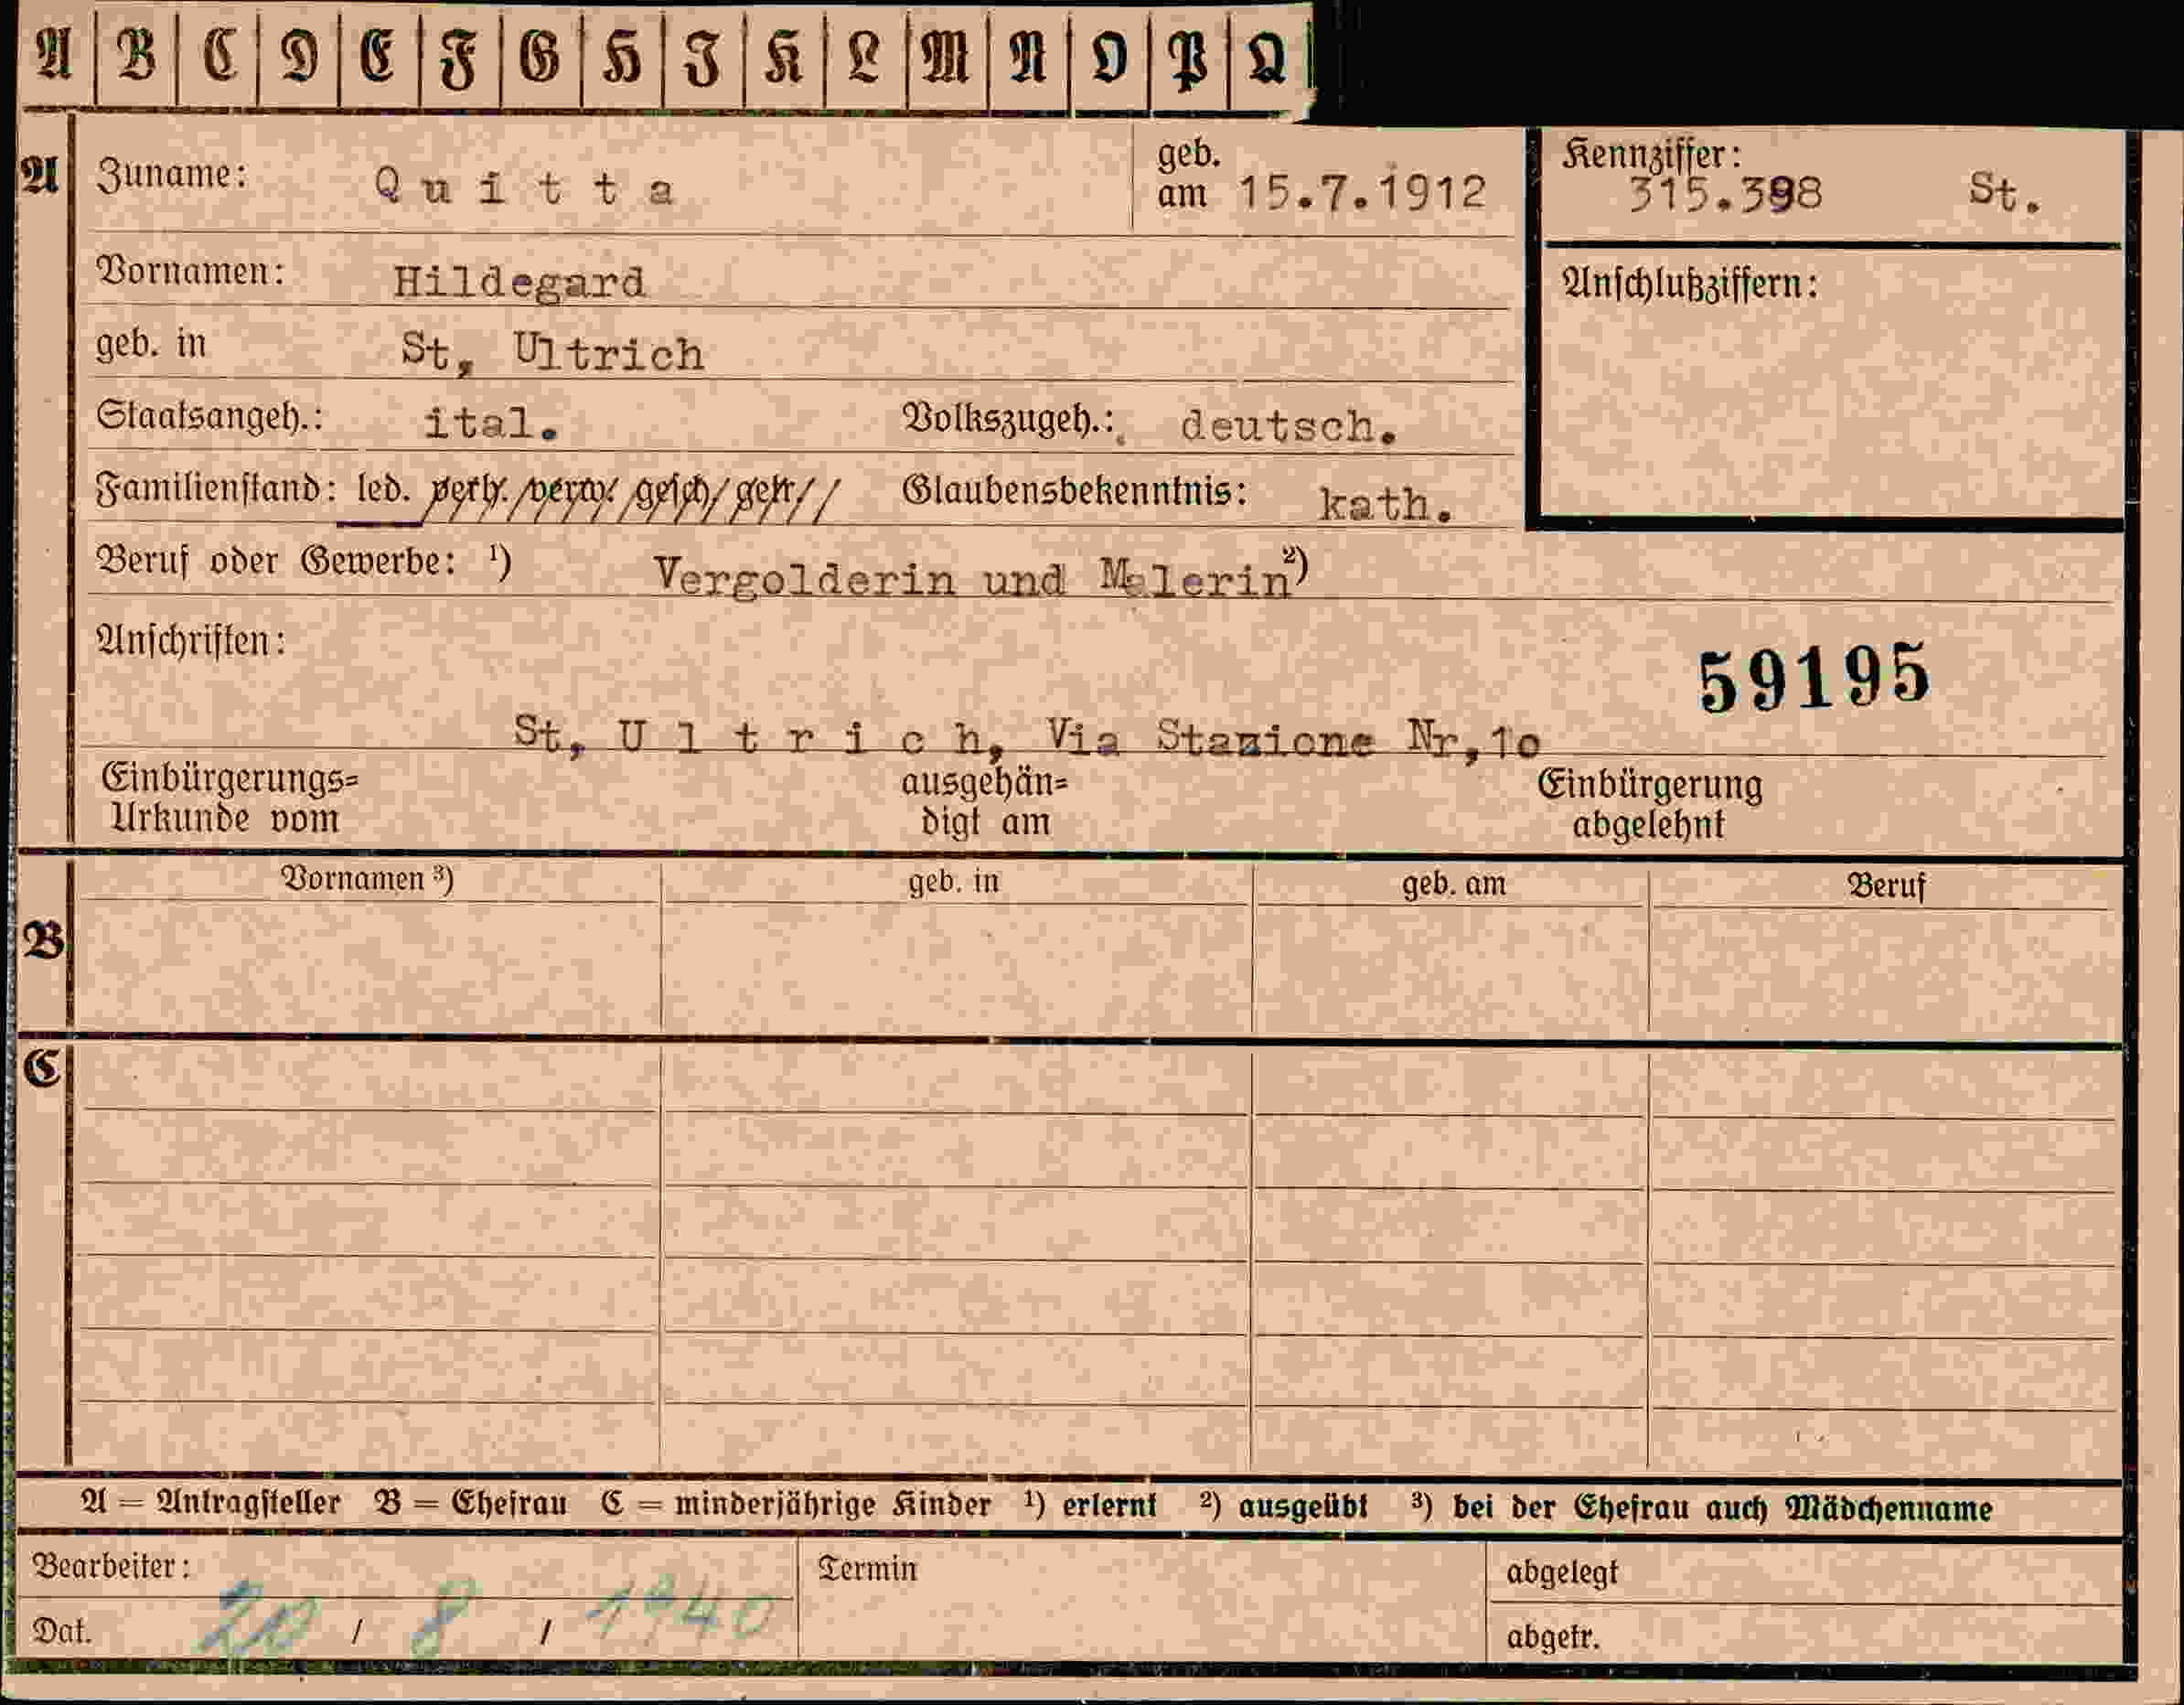 A B C D E F G H I K L M N O P Q
A Zuname: Quitta geb. am 15.7.1912 Kennziffer: 315.398 St.
Vornamen: Hildegard Anschlußziffern:
geb. in St, Ultrich
Staatsangeh.: ital. Volkszugeh.: deutsch.
Familienstand: led. verh. verw. gesch. getr. Glaubensbekenntnis: kath.
Beruf oder Gewerbe: ¹) Vergolderin und Malerin ²)
Anschriften:
59195
St, Ultrich, Via Stazione Nr,1o
Einbürgerungs= ausgehän= Einbürgerung
Urkunde vom digt am abgelehnt
Vornamen ³) geb. in geb. am Beruf
B
C
A = Antragsteller B = Ehefrau C = minderjährige Kinder ¹) erlernt ²) ausgeübt ³) bei der Ehefrau auch Mädchenname
Bearbeiter: Termin abgelegt
Dat. 20 / 8 / 1940 abgetr.